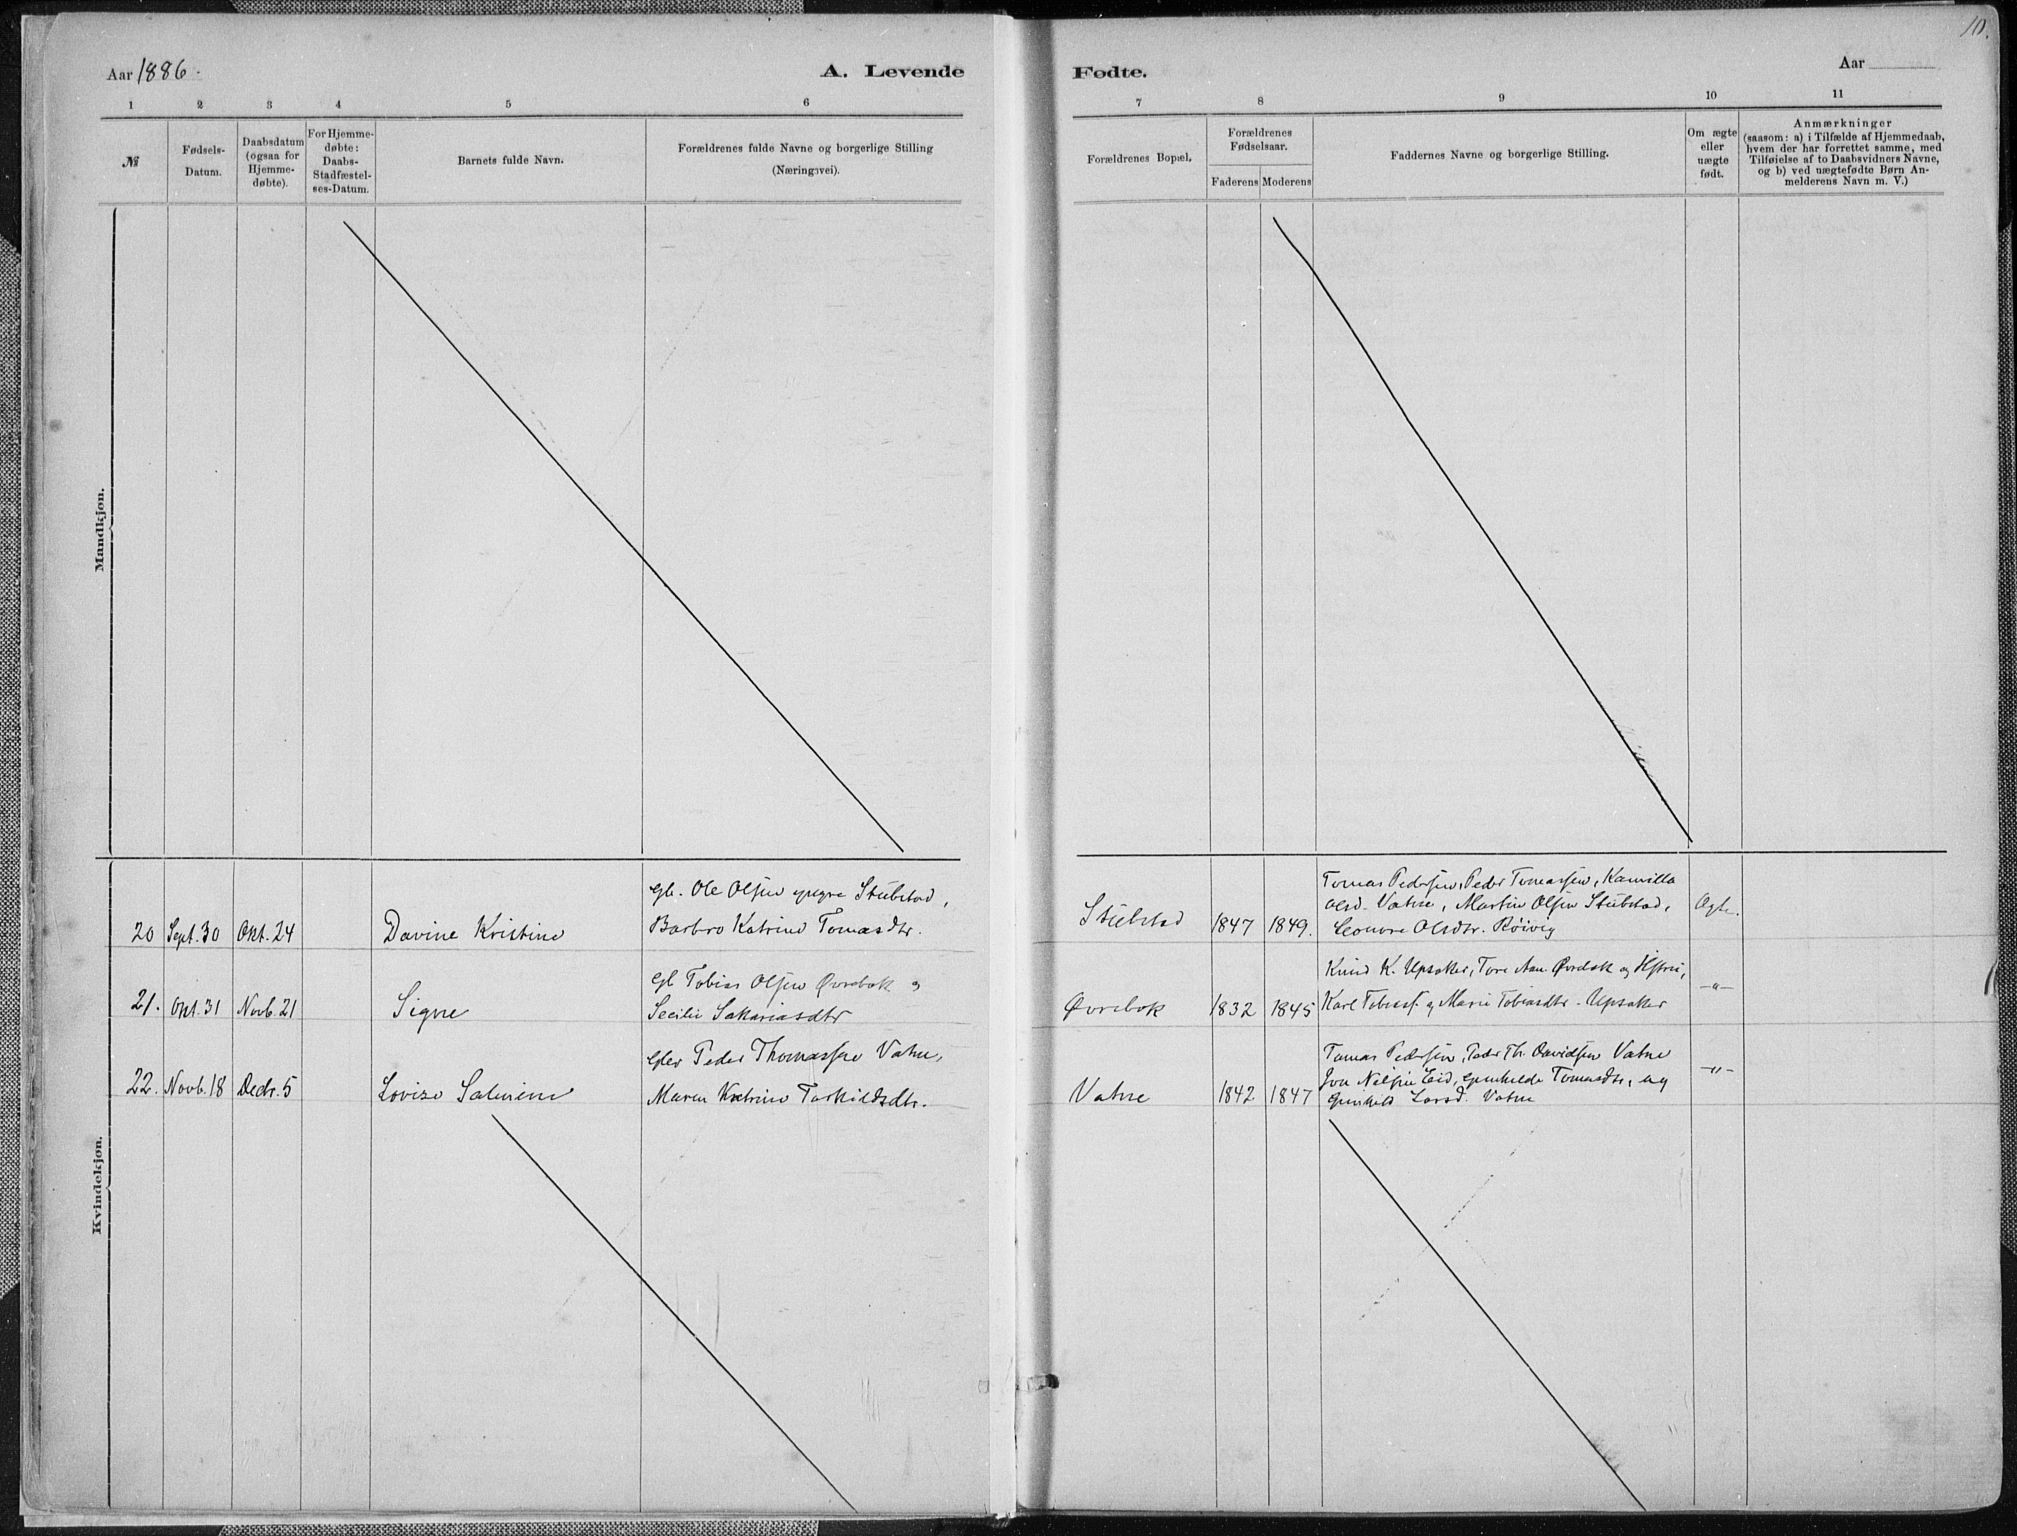 10.
Aar 1886.
A. Levende Fødte.
Aar
1 2 3 4 5 6 7 8 9 10 11
№
Fødsels-
Datum.
Daabsdatum
(ogsaa for
Hjemme-
døbte).
For Hjemme-
døbte:
Daabs-
Stadfæstel-
ses-Datum.
Barnets fulde Navn.
Forældrenes fulde Navne og borgerlige Stilling
(Næringsvei).
Forældrenes Bopæl.
Forældrenes
Fødselsaar.
Faderens Moderens
Faddernes Navne og borgerlige Stilling.
Om ægte
eller
uægte
født.
Anmærkninger
(saasom: a) i Tilfælde af Hjemmedaab,
hvem der har forrettet samme, med
Tilføielse af to Daabsvidners Navne,
og b) ved uægtefødte Børn An-
melderens Navn m. V.)
Mandkjøn.
Kvindekjøn.
20 Sept. 30 Okt. 24
Davine Kristine
Gb. Ole Olsen yngre Stubstad,
Barbro Katrine Tomasdtr.
Stubstad
1847 1849.
Tomas Pedersen, Peder Tomassen, Kamilla
Olsd. Vatne, Martin Olsen Stubstad,
Leonore Olsdtr. Røivig
Ægte.
21. Okt. 31 Novb. 21
Signe
Gb Tobias Olsen Øvrebok og
Secilie Sakariasdtr
Øvrebok
1832 1845
Knud K. Upsaker, Tore Aan. Øvrebok og Hstru,
Karl Tobiass. og Marie Tobiasdtr. Upsaker
-"-
22. Novb. 18 Decbr. 5
Lovise Salmine
Gbr Peder Thomassen Vatne,
Maren Katrine Torkildsdtr.
Vatne
1842 1847
Tomas Pedersen, Peder Th. Davidsen Vatne
Jon Nilsen Eid, Gunhilde Tomasdtr. og
Gunhild Larsd. Vatne
-"-